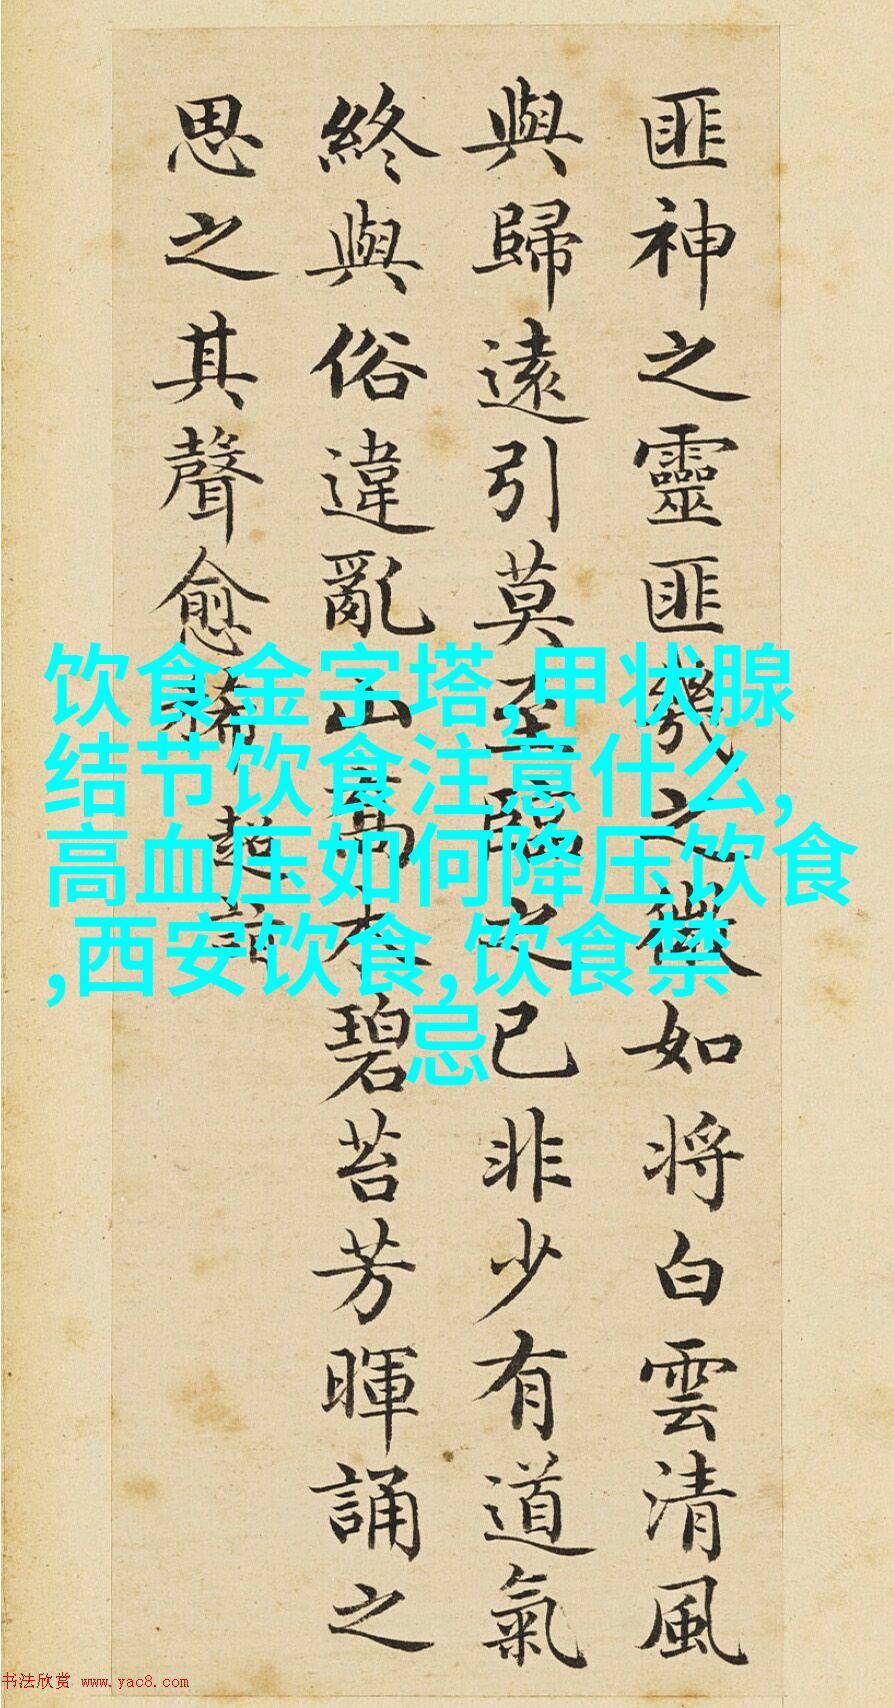 匪神之靈匪幾之微如將白雲清風
與歸遠引莫至臨之已非少有道氣
終與俗違亂山喬木碧苔芳暉誦之
思之其聲愈稀 超詣
饮食金字塔,甲状腺
结节饮食注意什么,
高血压如何降压饮食
,西安饮食,饮食禁
忌
书法欣赏 www.yac8.com